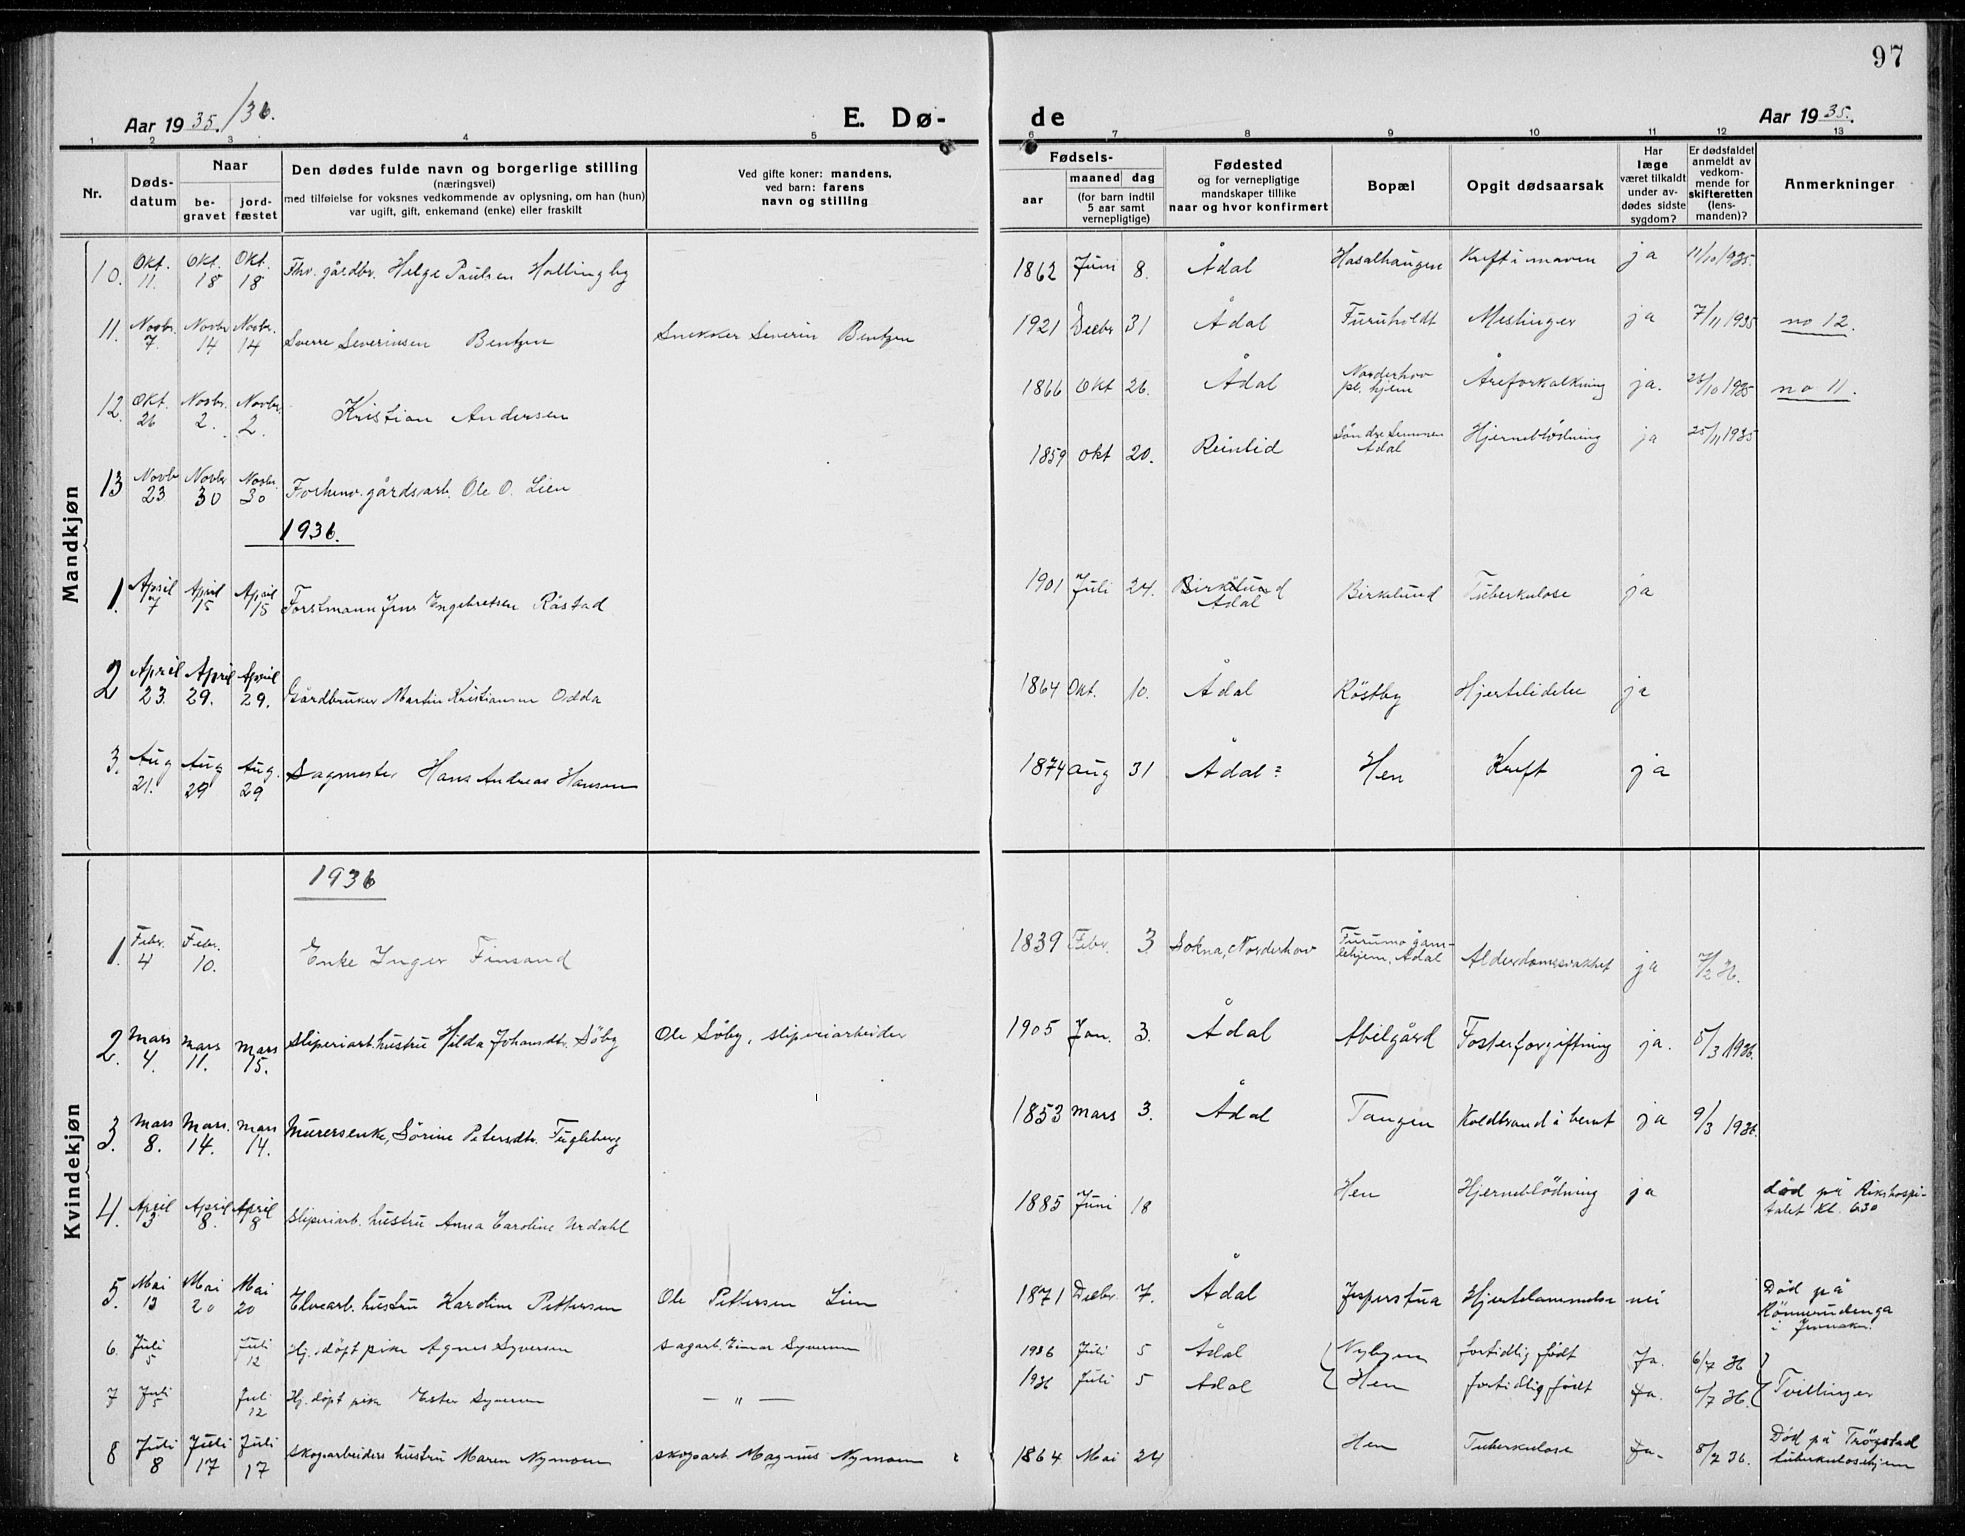 97
Aar 1935./36. E. Dø-de Aar 1935.
1 2 3 4 5 6 7 8 9 10 11 12 13
Nr. Døds-datum Naar be-gravet jord-fæstet Den dødes fulde navn og borgerlige stilling (næringsvei) med tilføielse for voksnes vedkommende av oplysning, om han (hun) var ugift, gift, enkemand (enke) eller fraskilt Ved gifte koner: mandens, ved barn: farens navn og stilling Fødsels- aar maaned dag (for barn indtil 5 aar samt vernepligtige) Fødested og for vernepligtige mandskaper tillike naar og hvor konfirmert Bopæl Opgit dødsaarsak Har læge været tilkaldt under av-dødes sidste sygdom? Er dødsfaldet anmeldt av vedkom-mende for skifteretten (lens-manden)? Anmerkninger
Mandkjøn
10. Okt. 11. Okt. 18 Okt. 18 Fhv. gårdbr. Helge Paulsen Hallingby 1862 Juni 8. Ådal Hasalhaugen Kreft i maven ja 11/10 1935
11. Novbr. 7. Novbr 14 Novbr. 14 Sverre Severinsen Bentzen Snekker Severin Bentzen 1921 Decbr 31 Ådal Furuholdt Meslinger ja 7/11 1935 no 12.
12. Okt. 26 Novbr. 2. Novbr. 2. Kristian Andersen 1866 Okt 26. Ådal Norderhov pl. hjem Åreforkalkning ja. 26/10 1935 no 11.
13 Novb 23 Novbr 30 Novbr. 30 Forhenv. gårdsarb. Ole O. Lien 1859 okt 20. Reinlid Søndre Semmen Ådal Hjerneblödning ja 25/11 1935
1936.
1. April 7 April 15 April 15 Forstmann Jens Engebretsen Råstad 1901 Juli 24. Birkelund Ådal Birkelund Tuberkulose ja
2 April 23. April 29. April 29. Gårdbruker Martin Kristiansen Odda 1864 Okt. 10. Ådal Röstby Hjertelidelse ja
3. Aug 21. Aug 29 Aug. 29 Sagmester Hans Andreas Hansen 1874 aug 31 Ådal? Hen Kreft ja
Kvindekjøn
1936
1. Febr. 4 Febr. 10. Enke Inger Finsand 1839 Febr. 3 Sokna, Norderhov Furumo gam-lehjem, Ådal Alderdomssvakhet ja 7/2 36.
2. Mars 4. Mars 11. Mars 15. Sliperiarb. hustru Hilda Johansdtr. Söby Ole Söby, sliperiarbeider 1905 Jan. 3. Ådal Abilgård Fosterforgiftning ja. 5/3 1936.
3. Mars 8. Mars. 14. Mars 14. Murersenke, Sörine Petersdtr. Fugleberg 1853 Mars 3. Ådal Tangen Koldbrand i benet ja 9/3 1936.
4. April 3 April 8. April 8 Sliperiarb. hustru Anna Caroline Urdahl 1885 Juni 18 Hen Hjerneblödning ja död på Rikshospi-talet Kl. 630
5. Mai 13 Mai 20 Mai 20 Elvearb. hustru Karoline Pettersen Ole Pettersen Lien 1871 Decbr. 7. Ådal Jesperstua Hjertelammelse nei Död på Rönnerudenga i Jevnaker.
6. Juli 5 Juli 12 Hj. döpt pike Agnes Syversen sagarb. Einar Syversen 1936 Juli 5 Ådal Nybyen fortidlig födt Ja. 6/7 36
7 Juli 5 Juli 12 Hj. döpt pike Ester Syversen — " — 1936 Juli 5 Ådal Hen fortidlig födt Ja. 6/7 36. Tvillinger
8 Juli 8 Juli 17 Juli 17 Skogsarbeiders hustru Maren Nymoen skogsarb. Magnus Nymoen 1864 Mai 24 Hen Tuberkulose Ja. 8/7 36. Död på Trøgstad tuberkulosehjem